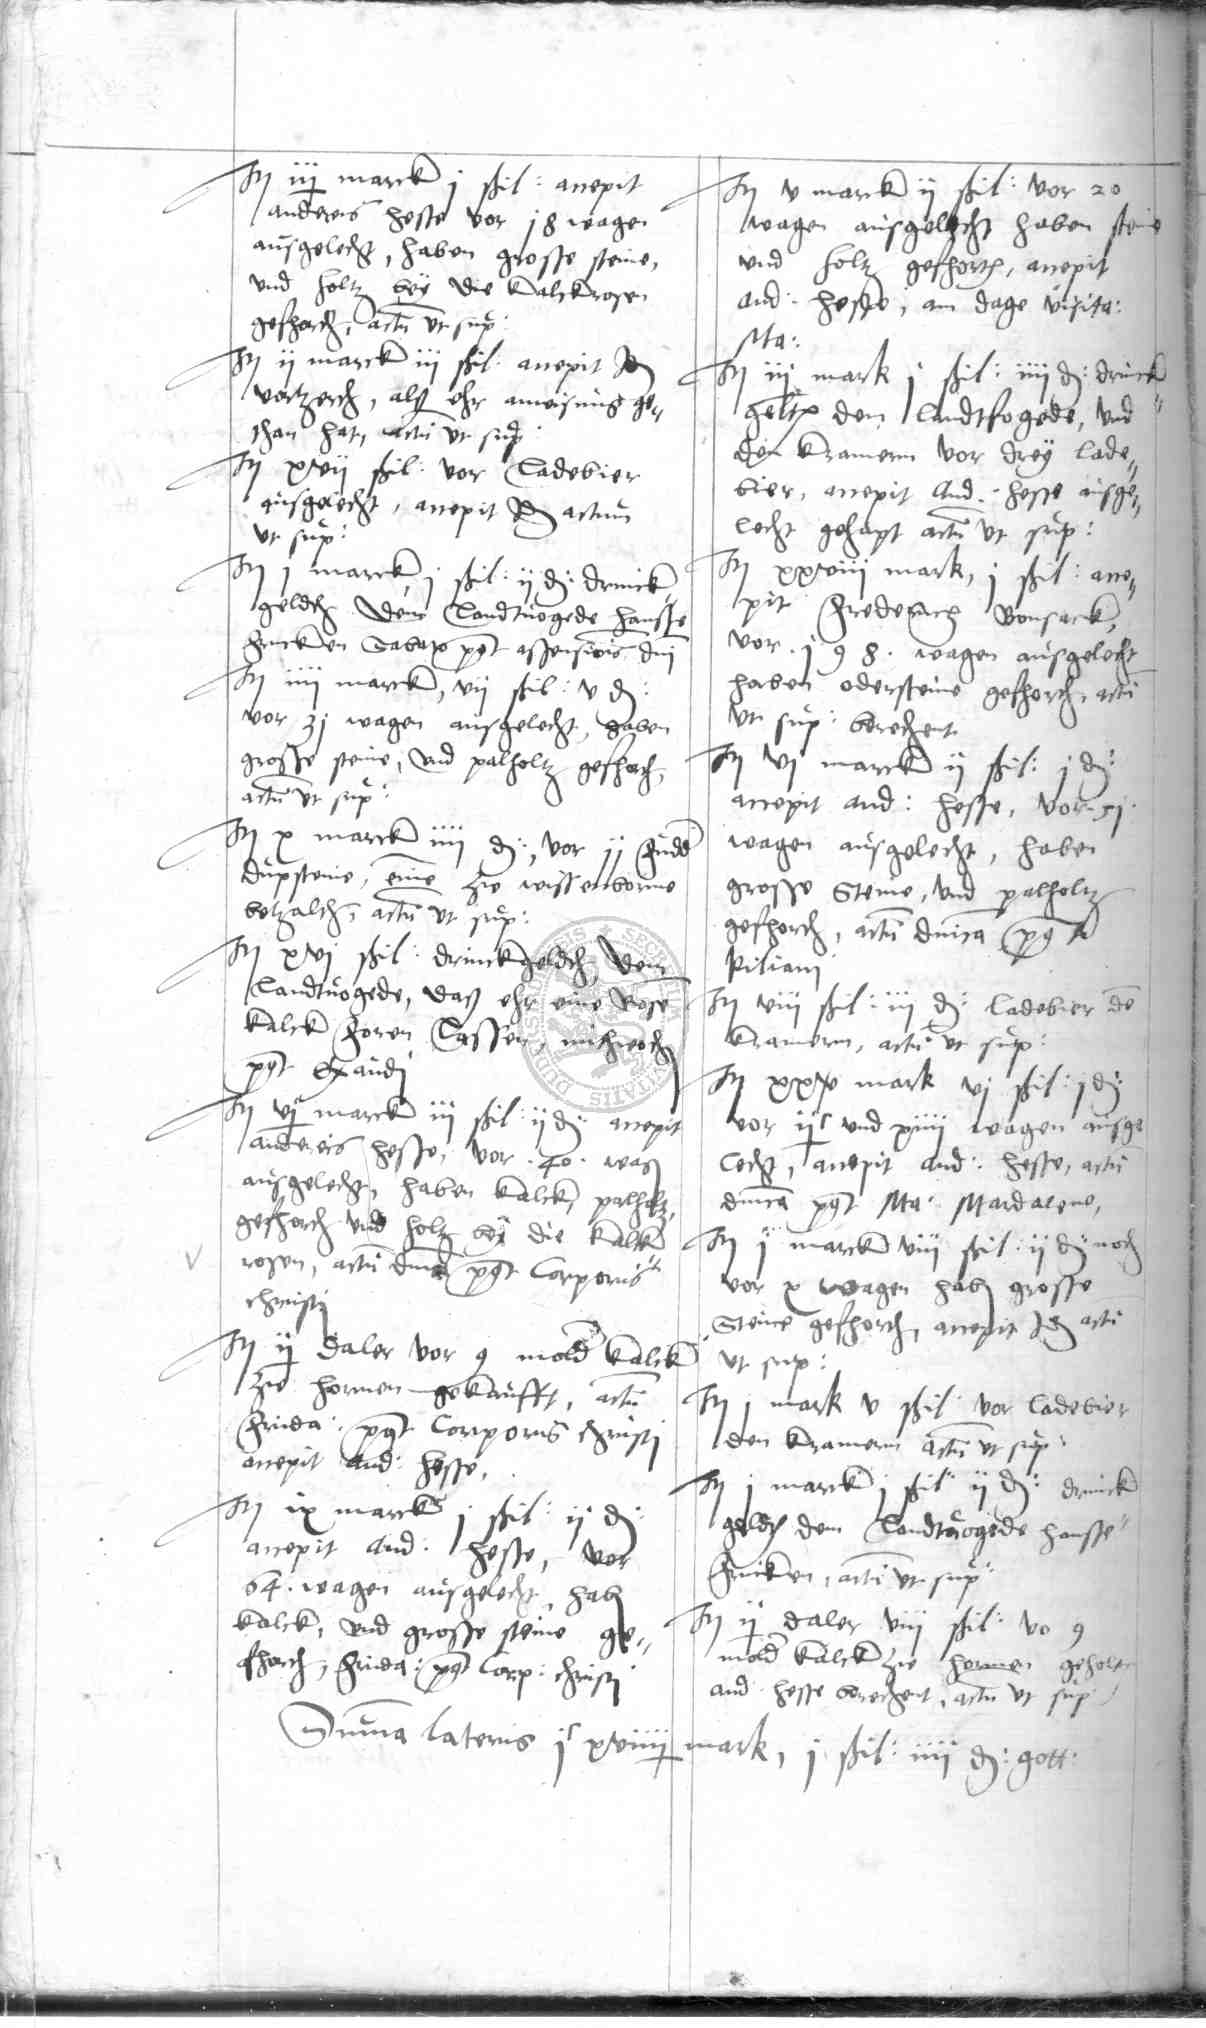 It iij marck j ßil: accepit
anderes hesse vor 18 wagen
ausgelecht, haben grosse steine,
und holtz bey die kalckrosen
gefhorth, actu ut sup:
It ij marck iij ßil: accepit
vortzerth, alß ehr anweisung ge„
than hat, actu ut sup:
It xvij ßil: vor Ladebier
ausgelecht, accepit actum
ut sup:
It j marck j ßil: ij d: drinck„
geldth dem Landtvogede hansse
fricken post assensionis dni
It iiij marck, vij ßil: v d:
vor 31 wagen ausgelecht, haben
grosse steine, und palholtz gefhorth,
actu ut sup:
It x marck iiij d:, vor ij fuder
dupsteine, zw wissenborne
betzalth, actu ut sup:
It xvj ßil: drinckgeldth, dem
Landtvogede, daß ehr eine Rose
kalck foren Lassen, mithwoch
post Exaudi
It vj marck iij ßil: ij d: accepit
anderes hesse, vor 40 wag
ausgelecht, haben kalck, palholtz,
gefhorth und holtz bey die kalck
rosen, actu dnica post Corporis
christi
It ij daler vor 9 mold kalck
zw hornen gekaufft, actu
frida: post Corporis christi
accepit And: hesse,
It ix marck j ßil: ij d:
accepit And: hesse, vor
64 wagen ausgelecht, hab
kalck, und grosse steine ge„
fhorth, frida: post Corp: christi
It v marck ij ßil: vor 20
wagen ausgelecht haben steine
und holtz gefhorth, accepit
And: hesse, am dage visita:
Ma:
It iij mark j ßil: iiij d: drinck„
geltt dem Landtfogede, und
den kramern vor drey lade„
bier, accepit And: hesse ausge„
lecht gehapt actu ut sup:
It xxviij mark, j ßil: acce„
pit frederich Bonsack,
vor 198 wagen ausgelecht
haben odersteine gefhorth, actu
ut sup: berechent
It vj marck ij ßil: j d:
accepit And: hesse, vor 51
wagen ausgelecht, haben
grosse Steine, und palholtz
gefhorth, actu dnica post
kiliani
It viij ßil: iij d: ladebier den
kramern, actu ut sup:
It xxxv mark vj ßil: j d:
vor ijC und xiiij wagen ausge
lecht, accepit And: hesse, actu
dnica post Ma: Mardalene,
It j marck viij ßil: ij d: noch
vor x wagen hab grosse
Steine gefhorth, accepit actu
ut sup:
It j mark v ßil: vor ladebier
den kramern actu ut sup:
It j marck j ßil: ij d: drinck
geldt dem Landtvogede hansse
fricken, actu ut sup:
It ij daler viij ßil: vo 9
mold kalck zw hornen geholt
And: hesse berechent, actu ut sup:
Summa lateris jC xviiij mark, j ßil: iiij d: gott: